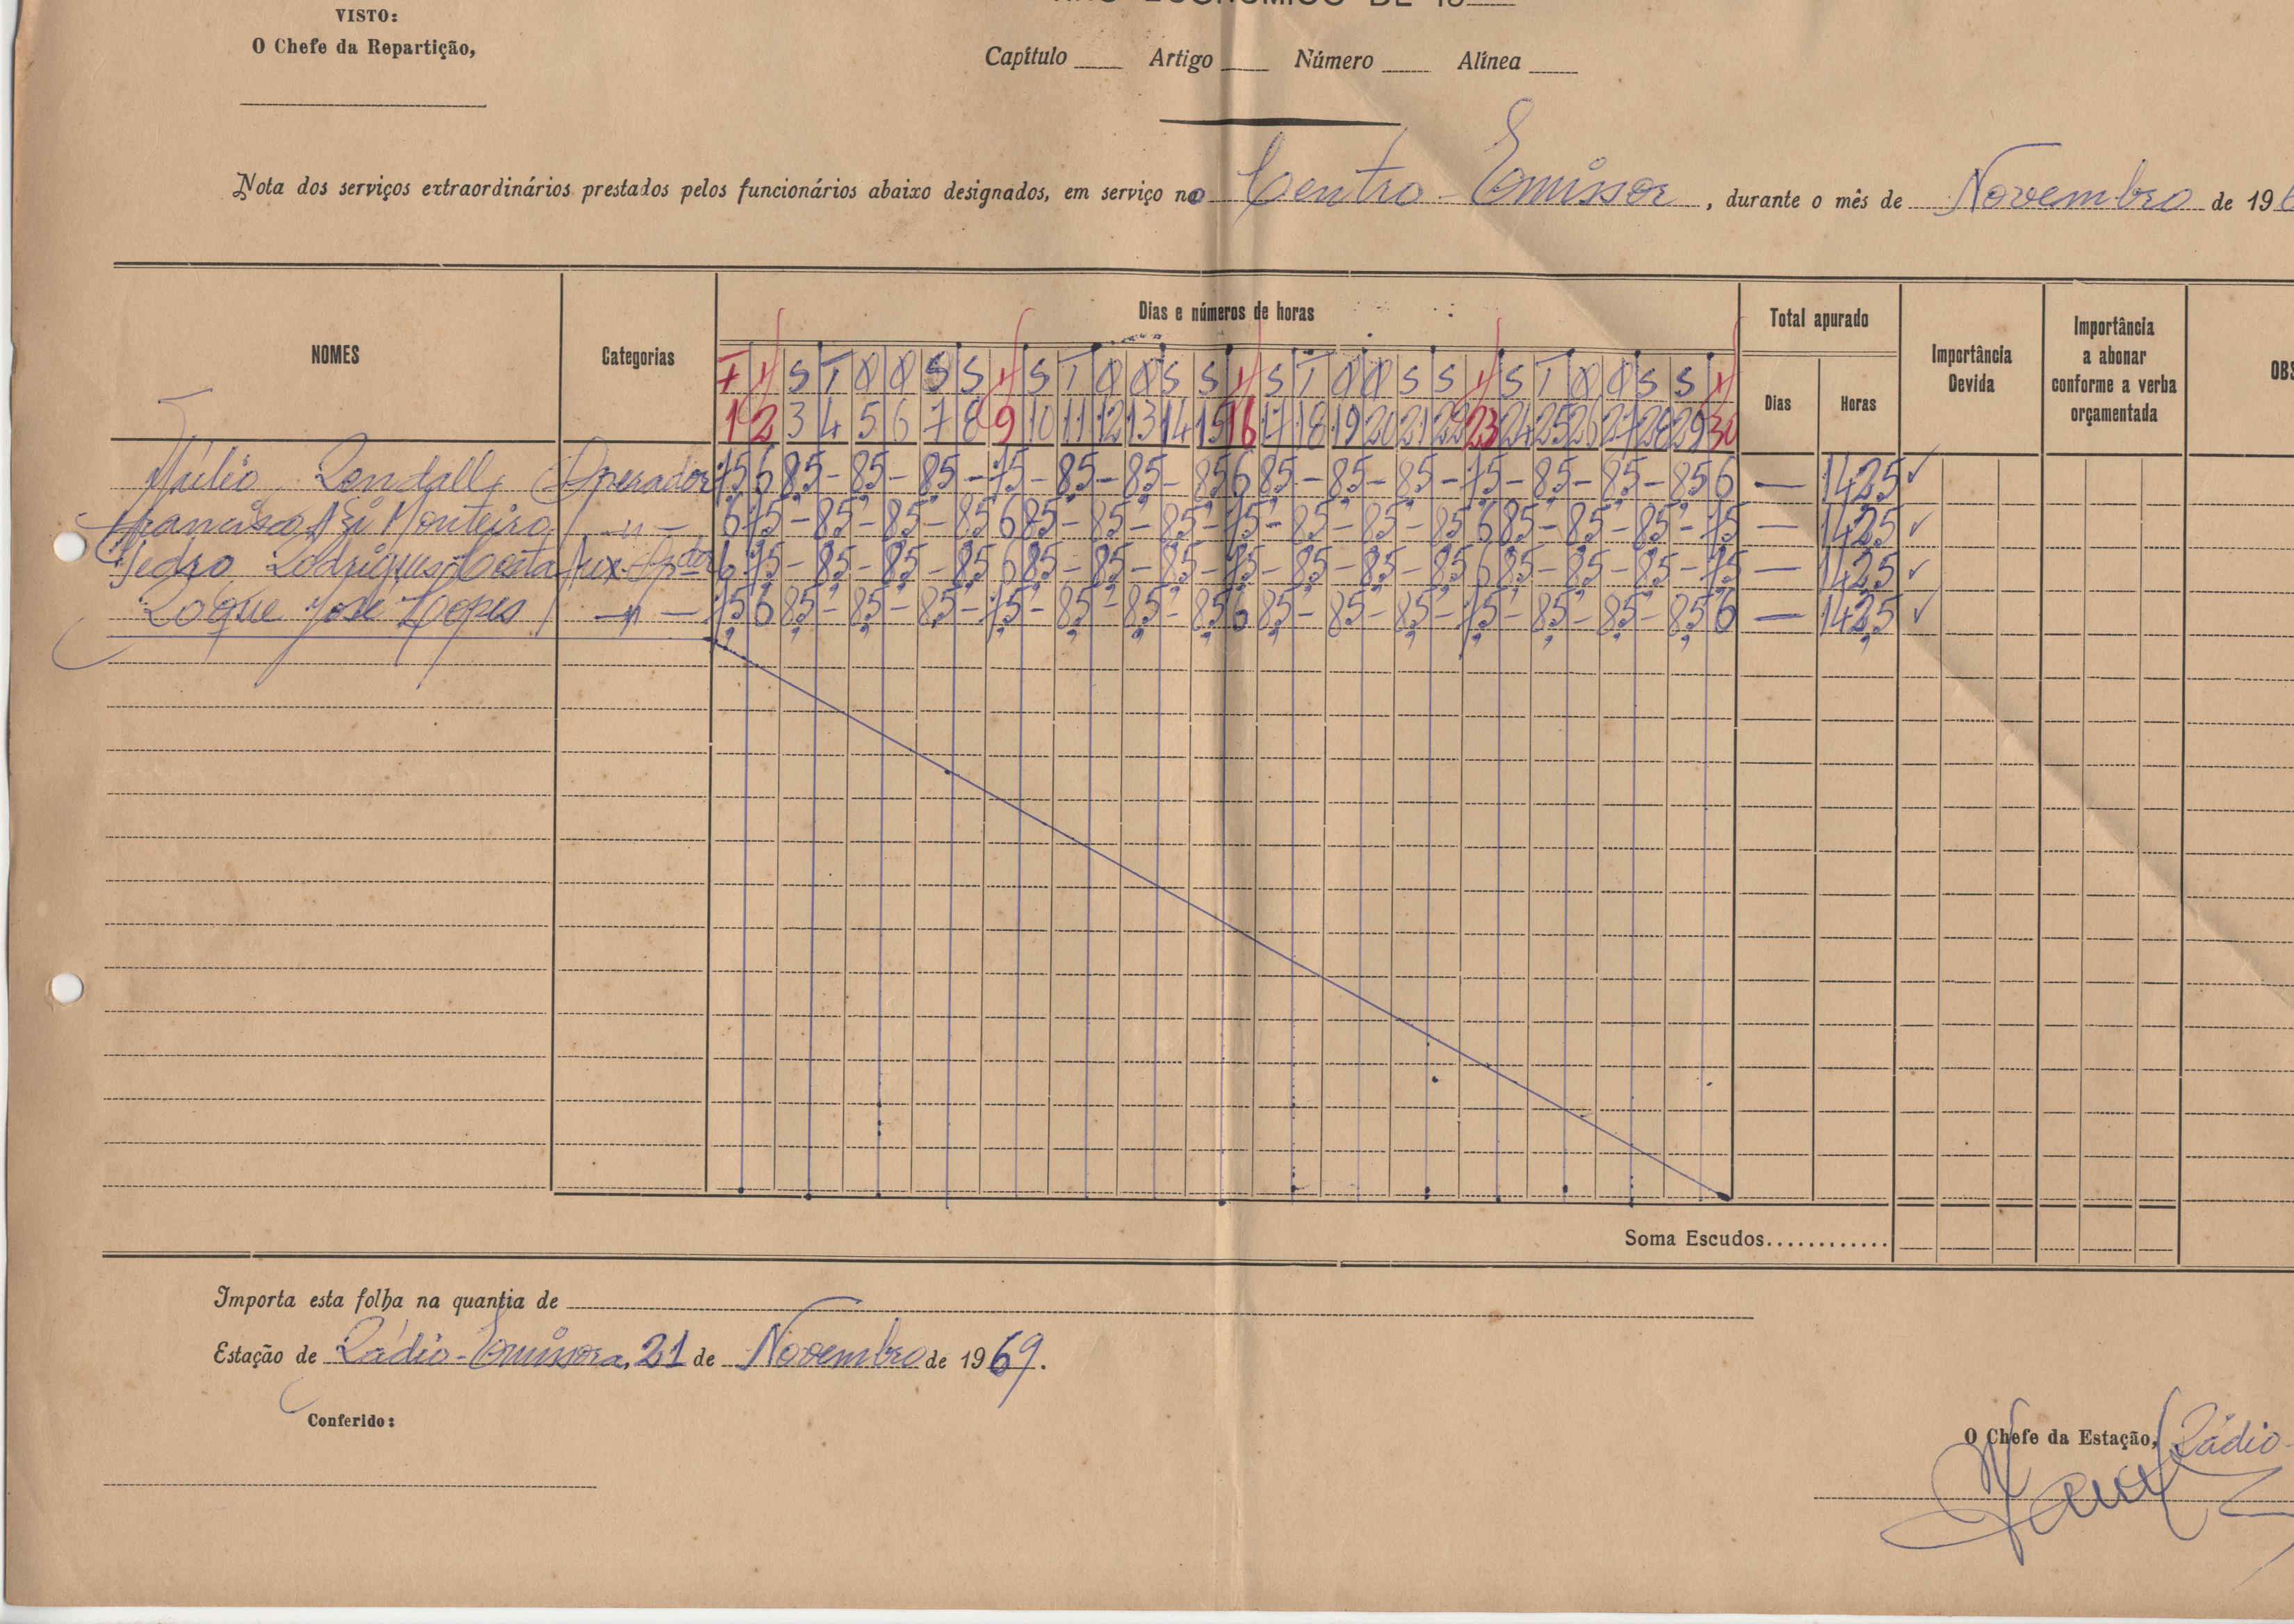 VISTO:
O Chefe da Repartição,
ANO ECONÓMICO DE 19
Capítulo Artigo Número Alínea
Nota dos serviços extraordinários prestados pelos funcionários abaixo designados, em serviço no Centro-Emissor, durante o mês de Novembro de 196
NOMES Categorias Dias e números de horas Total apurado Importância Devida Importância a abonar conforme a verba orçamentada OBS
Dias Horas
1 2 3 4 5 6 7 8 9 10 11 12 13 14 15 16 17 18 19 20 21 22 23 24 25 26 27 28 29 30
Operador 7,5 6 8,5 - 8,5 - 8,5 - 7,5 - 8,5 - 8,5 - 8,5 6 8,5 - 8,5 - 8,5 - 7,5 - 8,5 - 8,5 - 8,5 6 — 142,5 ✓
Francisco Monteiro —"— 6 7,5 - 8,5 - 8,5 - 8,5 6 8,5 - 8,5 - 8,5 - 7,5 - 8,5 - 8,5 - 8,5 6 8,5 - 8,5 - 8,5 - 7,5 — 142,5 ✓
Pedro Rodrigues Costa Aux. 6 7,5 - 8,5 - 8,5 - 8,5 6 8,5 - 8,5 - 8,5 - 7,5 - 8,5 - 8,5 - 8,5 6 8,5 - 8,5 - 8,5 - 7,5 — 142,5 ✓
Roque José Lopes —"— 7,5 6 8,5 - 8,5 - 8,5 - 7,5 - 8,5 - 8,5 - 8,5 6 8,5 - 8,5 - 8,5 - 7,5 - 8,5 - 8,5 - 8,5 6 — 142,5 ✓
Soma Escudos............
Importa esta folha na quantia de
Estação de Rádio-Emissora, 21 de Novembro de 1969.
Conferido:
O Chefe da Estação, Rádio-